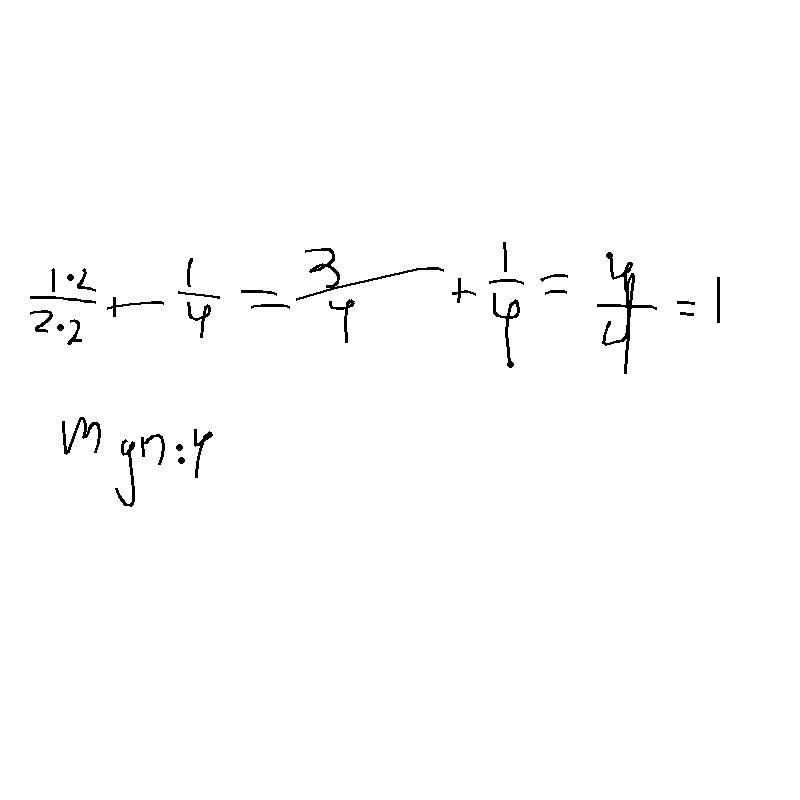 1·2/2·2 + 1/4 = 3/4 + 1/4 = 4/4 = 1
mgn:4